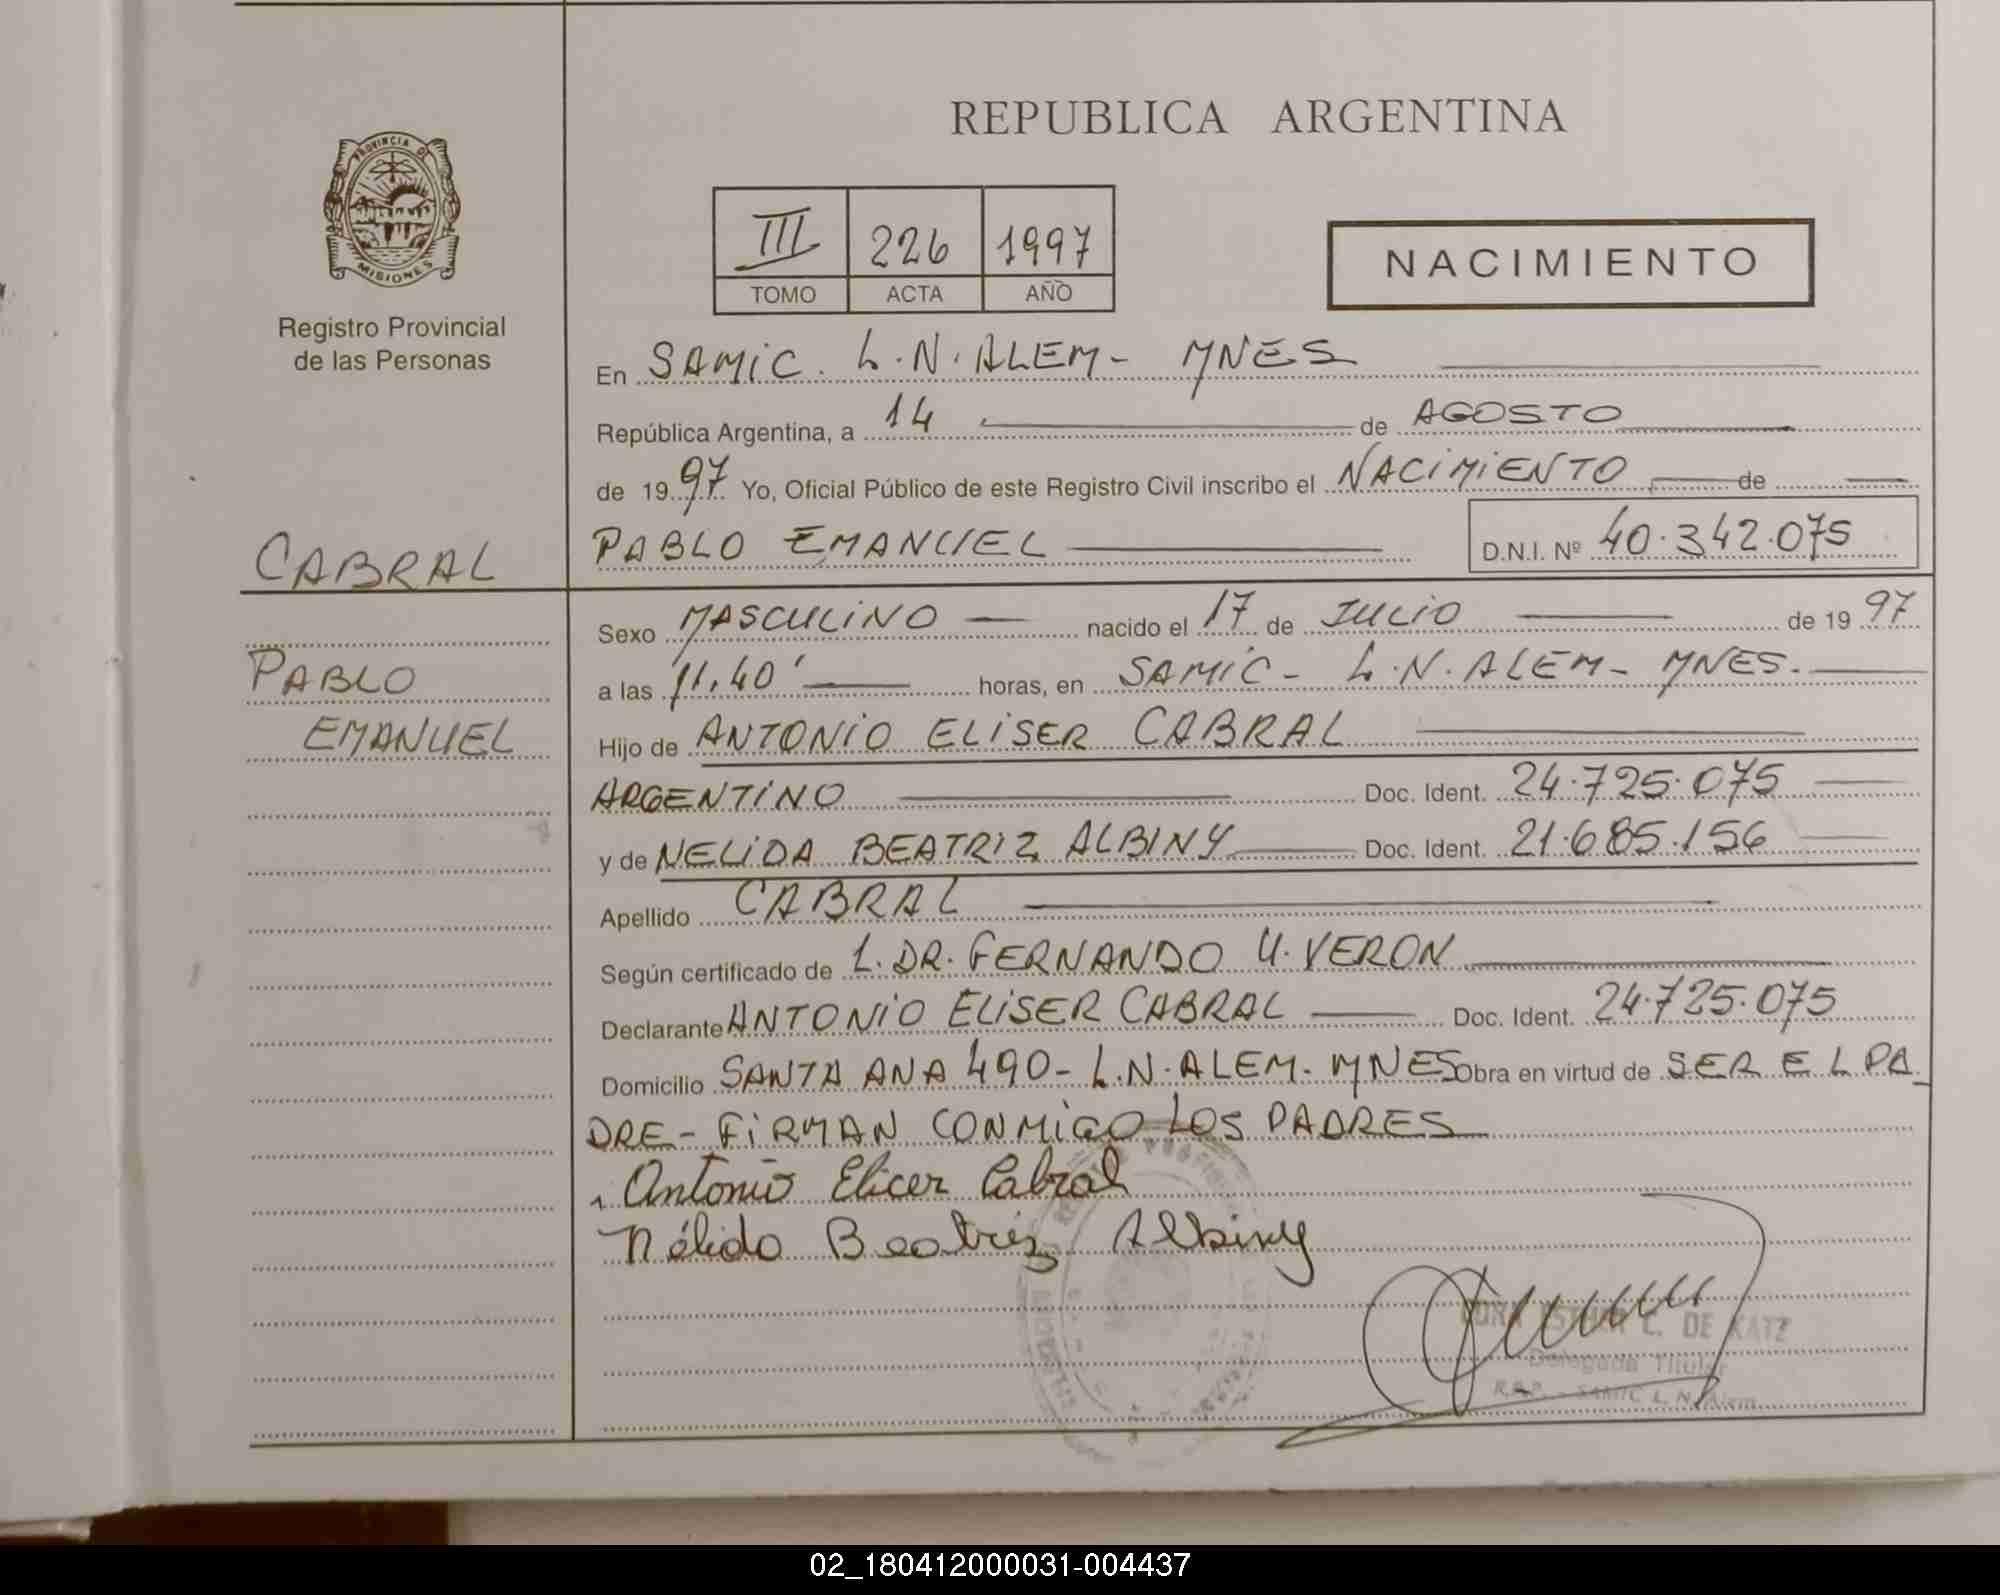 REPUBLICA ARGENTINA
PROVINCIA DE
MISIONES
Registro Provincial
de las Personas
III 226 1997
TOMO ACTA AÑO
NACIMIENTO
En SAMIC. L.N. ALEM - MNES
República Argentina, a 14 de AGOSTO
de 1997 Yo, Oficial Público de este Registro Civil inscribo el NACIMIENTO de
CABRAL
PABLO EMANUEL D.N.I. Nº 40.342.075
PABLO
EMANUEL
Sexo MASCULINO nacido el 17 de JULIO de 1997
a las 11,40' horas, en SAMIC - L.N. ALEM - MNES.
Hijo de ANTONIO ELISER CABRAL
ARGENTINO Doc. Ident. 24.725.075
y de NELIDA BEATRIZ ALBINY Doc. Ident. 21.685.156
Apellido CABRAL
Según certificado de L. DR. FERNANDO U. VERON
Declarante ANTONIO ELISER CABRAL Doc. Ident. 24.725.075
Domicilio SANTA ANA 490 - L.N. ALEM. MNES Obra en virtud de SER EL PA
DRE - FIRMAN CONMIGO LOS PADRES
Antonio Elicer Cabral
Nélida Beatriz Albiny
C. DE KATZ
Delegada Titular
R.P.P. - SAMIC L. N. Alem
02_180412000031-004437